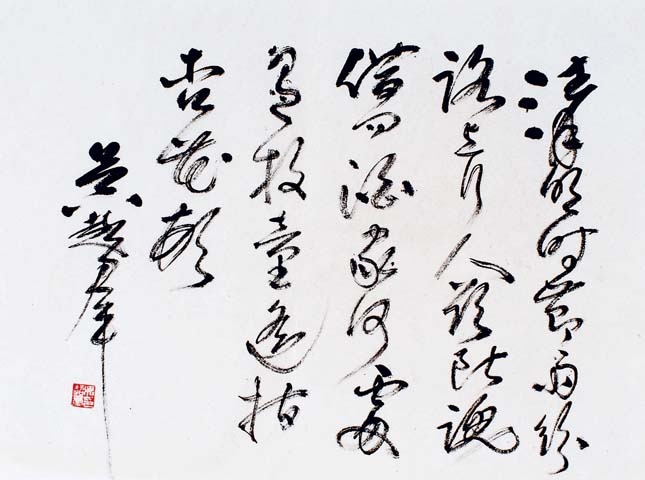 清明时节雨纷
路上行人欲断魂
借问酒家何处
有牧童遥指
杏花村
吴越